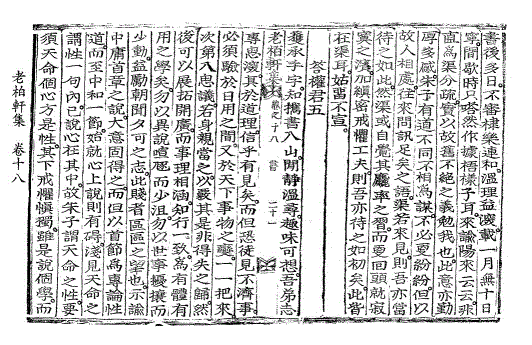 書後多日不審棣樂連和溫理益深載一月無十日
寧間歇時只嗒然作據梧樣子耳來諭陽來云云非
直爲渠分疏實以故舊不絶之義勉我也此意亦勤
厚多感朱子有道不同不相爲謀不必更紛紛但以
故人相處往來問訊足矣之語渠若來見則吾亦當
待之如此然渠或自覺其麤率之習而更回頭就寂
寞之濱加縝密戒懼工夫則吾亦待之如初矣此皆
在渠耳姑置不宣
答權君五
獲承手字知携書入山閒靜溫尋趣味可想吾弟志
老柏軒集 卷之十八 書 二十一
專思深其於道理信乎有見矣而但恐徒見不濟事
必須驗於日用之間又於天下事物之變一一把來
次第入思議若身親當之以嚴其是非得失之歸然
後可以展拓開廣而事理相涵知行一致爲有體有
用之學矣勿以異說喧豗而少沮勿以世事擾攘而
少動益勵朝聞夕可之志此賤者區區之望也示諭
中庸首章之說大意固得之而但以首節爲專論性
道而至中和一節始就心上說則有碍淺見天命之
謂性一句內已說心在其中故朱子謂天命之性要
須天命個心方是性其下戒懼愼獨雖是說個學而
老柏軒集 卷十八